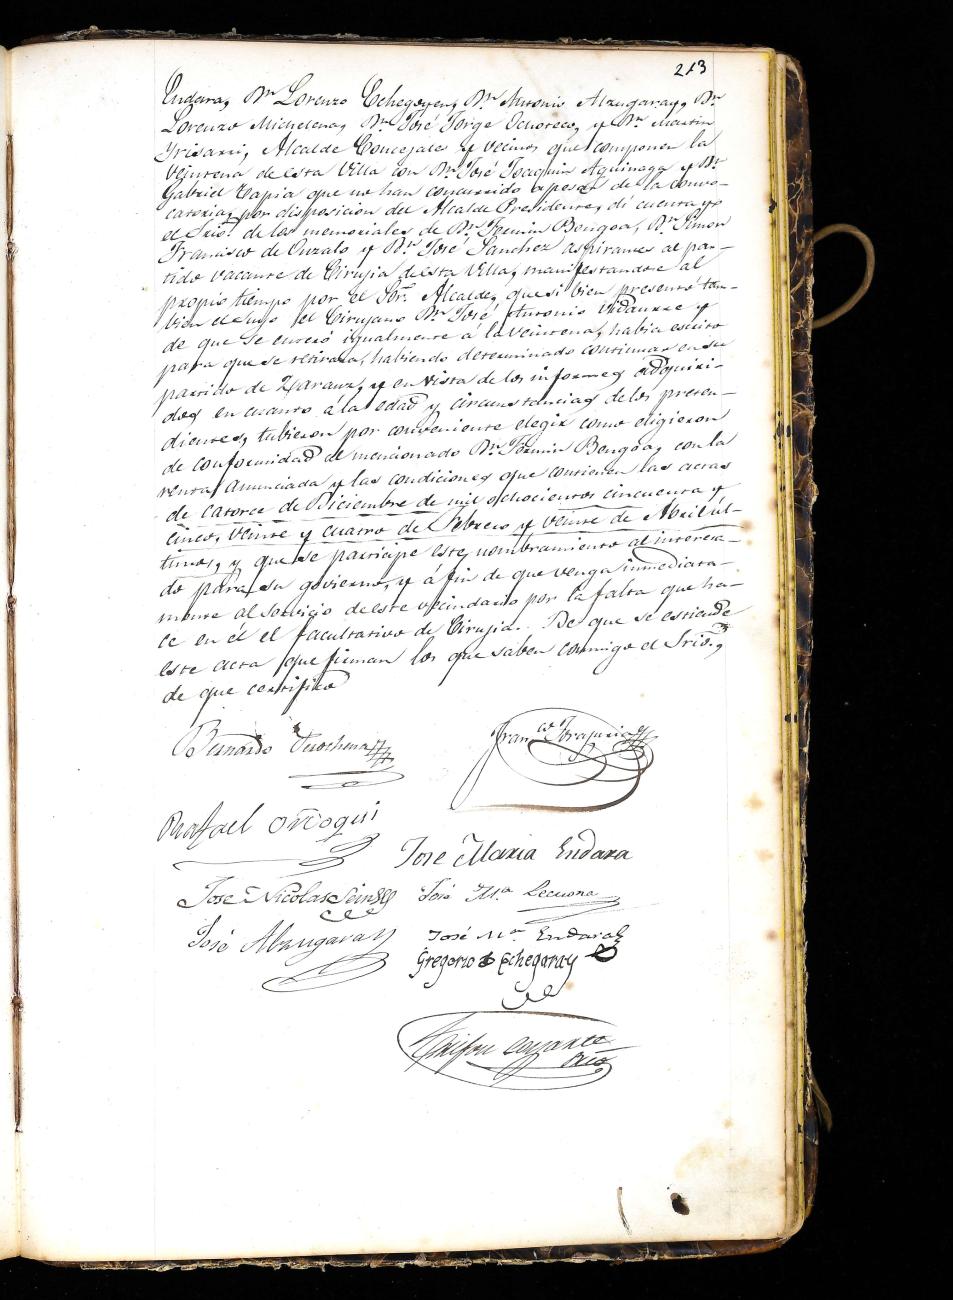 213
Endara, Dn Lorenzo Echegoyen, Dn Antonio Alzugaray, Dn
Lorenzo Michelena, Dn José Jorge Ochoteco, y Dn Martin
Yrisarri, Alcalde Concejales y vecinos que componen la
veintena de esta Villa con Dn José Joaquin Aguinaga y Dn
Gabriel Tapia que no han concurrido apesar de la convo-
catoria, por disposicion del Alcalde Presidente, dí cuenta yo
el Srio. de los memoriales de Dn Fermin Bengoa, Dn Simon
Francisco de Ouzalo y Dn José Sanchez aspirantes al par-
tido vacante de Cirujia de esta Villa, manifestandose al
propio tiempo por el Sor. Alcalde, que si bien presentó tam-
bien el suyo el Cirujano Dn José Antonio
de que se enteró igualmente á la veintena, habia escrito
para que se retirara, habiendo determinado continuar en su
partido de Zarauz, y en vista de los informes adquiri-
dos en cuanto á la edad y circunstancias de los preten-
dientes, tubieron por conveniente elegir como eligieron
de conformidad al mencionado Dn Fermin Bengoa, con la
renta anunciada y las condiciones que contienen las actas
de catorce de Diciembre de mil ochocientos cincuenta y
cinco, veinte y cuatro de Febrero y veinte de Abril úl-
timos, y que se participe este nombramiento al interesa-
do para su govierno, y á fin de que venga inmediata-
mente al servicio de este vecindario por la falta que ha-
ce en él el facultativo de Cirujia. De que se estiende
este acta que firman los que saben conmigo el Srio.,
de que certifico
Bernardo
Franco
Rafael Oteogui
Jose Maria Endara
Jose Nicolas
José Ma Lecuona
José Alzugaray
José Ma Endara
Gregorio Echegaray
Srio